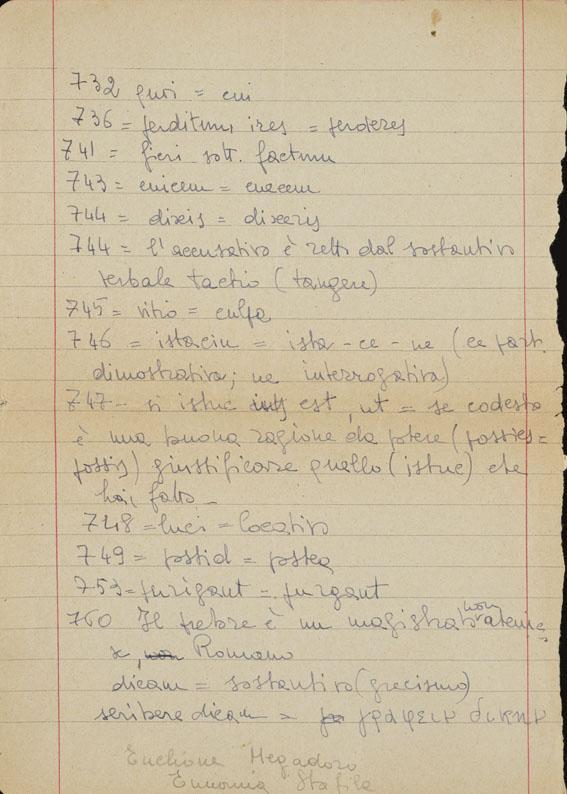 732 quoi = cui
736 = perditum ires = perderes
741 = fieri sott. factum
743 = enicem = enecem
744 = dixis = dixeris
744 = l'accusativo è retto dal sostantivo
verbale tactio (tangere)
745 = vitio = culpa
746 = istacin = ista - ce - ne (ce part.
dimostrativa; ne interrogativa)
747 - si istuc ius est, ut = se codesta
è una buona ragione da potere (possies =
possis) giustificare quello (istuc) che
hai fatto -
748 = luci = locativo
749 = postid = postea
753 = purigant = purgant
760 Il pretore è un magistrato non ateniese
, Romano
dicam = sostantivo (grecismo)
scribere dicam = γράφειν δίκην
Euclione Megadoro
Eunomia Stafila